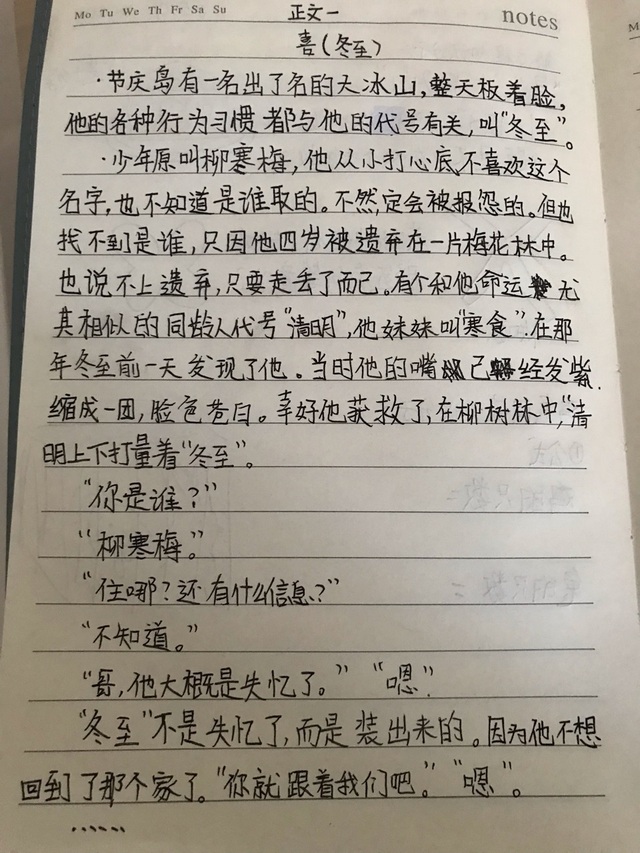 Mo Tu We Th Fr Sa Su 正文一 notes
喜(冬至)
·节庆岛有一名出了名的大冰山,整天板着脸,
他的各种行为习惯都与他的代号有关,叫"冬至"。
·少年原叫柳寒梅,他从小打心底不喜欢这个
名字,也不知道是谁取的。不然,定会被报怨的。但也
找不到是谁,只因他四岁被遗弃在一片梅花林中。
也说不上遗弃,只要走丢了而已。有个和他命运尤
其相似的同龄人代号"清明",他妹妹叫"寒食".在那
年冬至前一天发现了他。当时他的嘴已经发紫.
缩成一团,脸色苍白。幸好他获救了,在柳树林中,"清
明上下打量着"冬至"。
"你是谁?"
"柳寒梅。"
"住哪?还有什么信息?"
"不知道。"
"哥,他大概是失忆了。" "嗯".
"冬至"不是失忆了,而是装出来的。因为他不想
回到了那个家了。"你就跟着我们吧。" "嗯"。
......